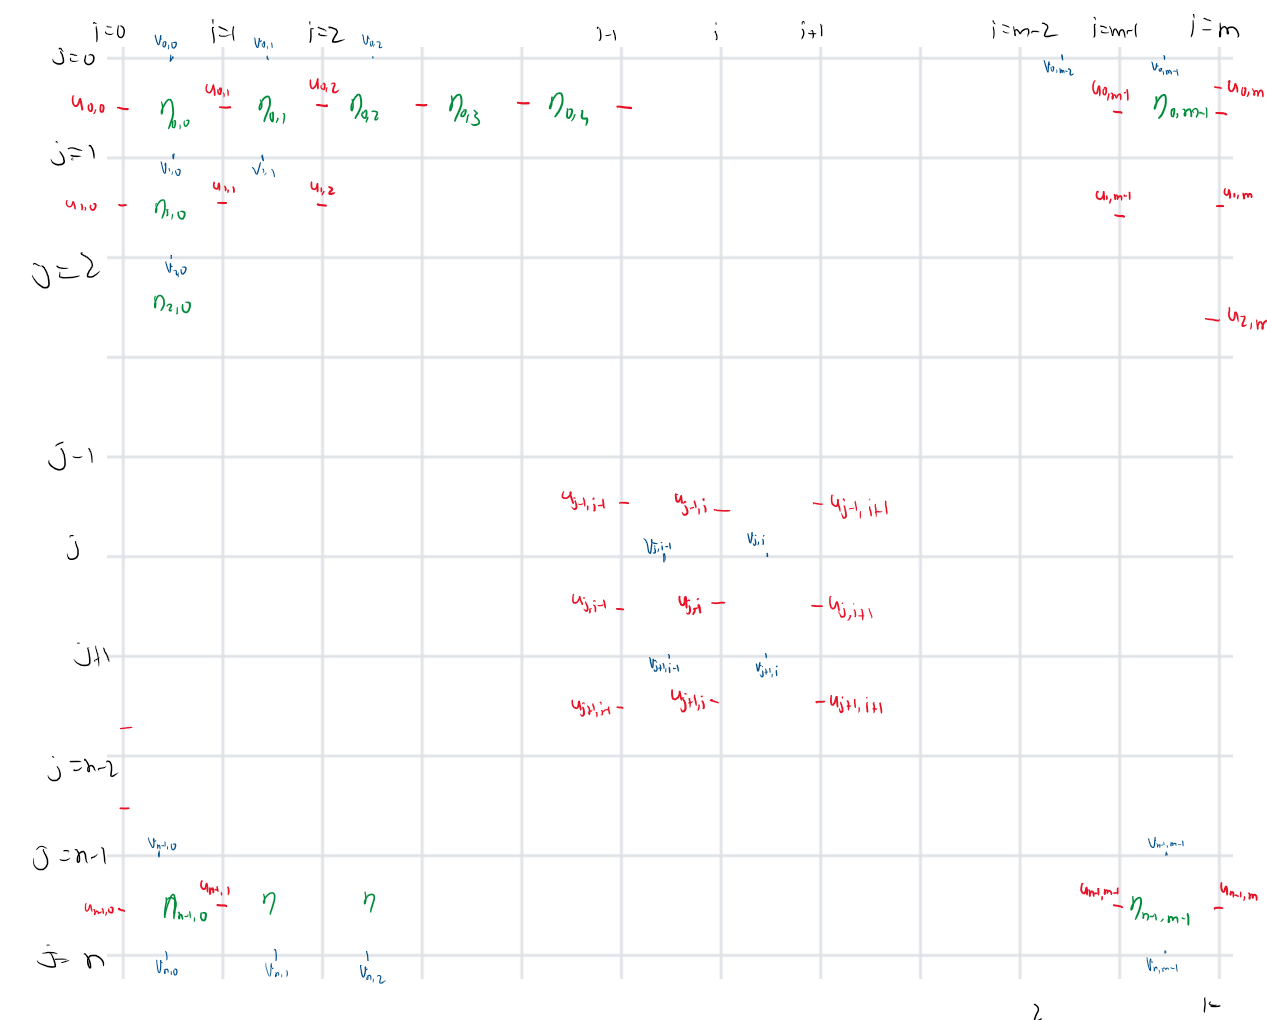 i=0 i=1 i=2 i-1 i i+1 i=m-2 i=m-1 i=m
v0,0 v0,1 v0,2
j=0 v0,m-2 v0,m-1
u0,0 η0,0 u0,1 η0,1 u0,2 η0,2 η0,3 η0,4 u0,m-1 η0,m-1 u0,m
j=1
v1,0 v1,1
u1,0 η1,0 u1,1 u1,2 u1,m-1 u1,m
j=2 v2,0
η2,0 u2,m
j-1
uj-1,i-1 uj-1,i uj-1,i+1
j vj,i-1 vj,i
uj,i-1 uj,i uj,i+1
j+1 vj+1,i-1 vj+1,i
uj+1,i-1 uj+1,i uj+1,i+1
j=n-2
vn-1,0 vn-1,m-1
j=n-1
un-1,0 ηn-1,0 un-1,1 η η un-1,m-1 ηn-1,m-1 un-1,m
j=n vn,0 vn,1 vn,2 vn,m-1
2